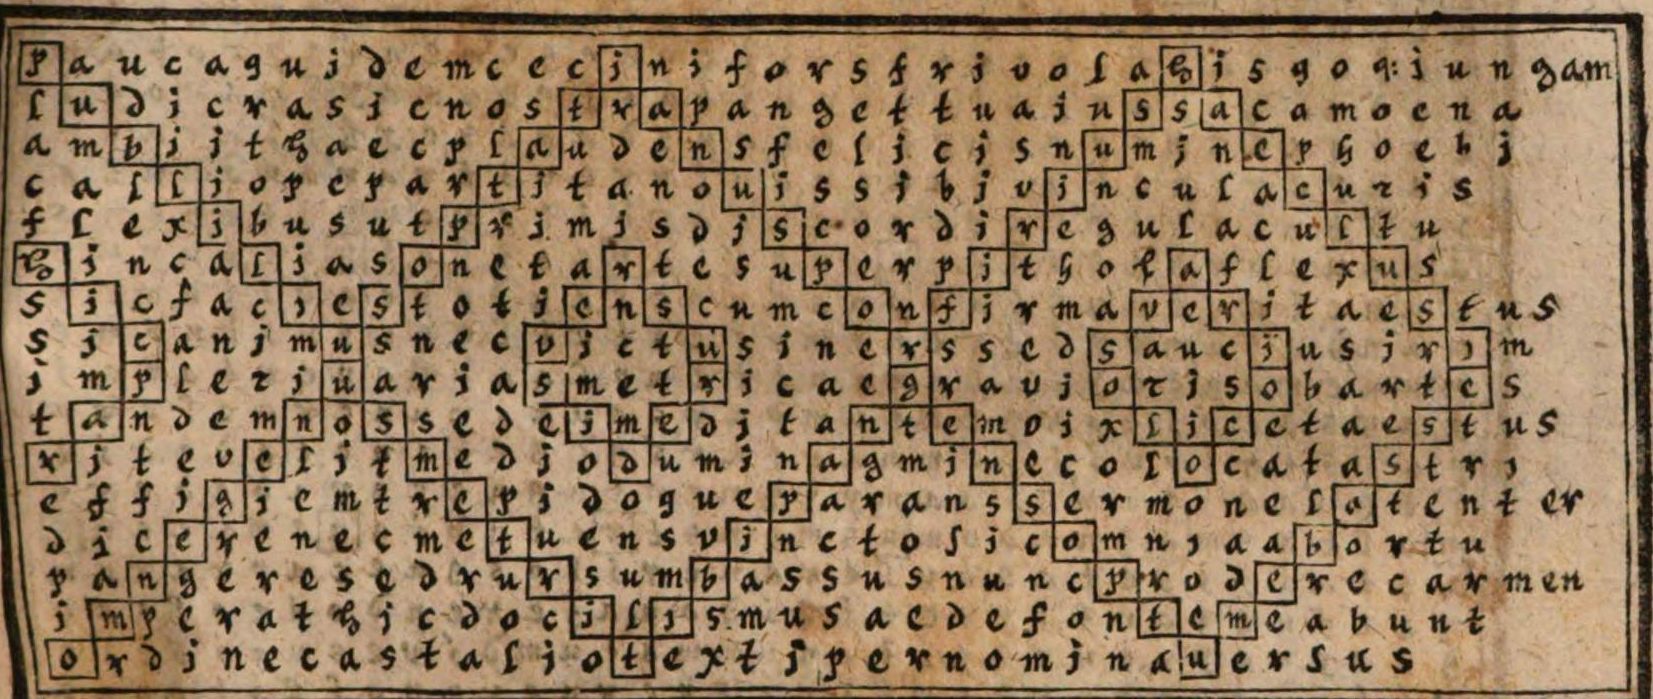 p a u c a q u i d e m c e c i n i f o r s f r i v o l a h i s q o q: i u n g a m
l u d i c r a s i c n o s t r a p a n g e t t u a i u s s a c a m o e n a
a m b i i t h a e c p l a u d e n s f e l i c i s n u m i n e p h o e b i
c a l l i o p e p a r t i t a n o u i s s i b i v i n c u l a c u r i s
f l e x i b u s u t p r i m i s d i s c o r d i r e g u l a c u l t u
h i n c a l i a s o n e t a r t e s u p e r p i t h o l a f l e x u s
s i c f a c i e s t o t i e n s c u m c o n f i r m a v e r i t a e s t u s
s i c a n i m u s n e c v i c t u s i n e r s s e d s a u c i u s i r i m
i m p l e r i u a r i a s m e t r i c a e g r a u i o r i s o b a r t e s
t a n d e m n o s s e d e i m e d i t a n t e m o i x l i c e t a e s t u s
r i t e v e l i t m e d i o d u m i n a g m i n e c o l o c a t a s t r i
e f f i g i e m t r e p i d o q u e p a r a n s s e r m o n e l a t e n t e r
d i c e r e n e c m e t u e n s v i n c t o s i c o m n i a a b o r t u
p a n g e r e s e d r u r s u m b a s s u s n u n c p r o d e r e c a r m e n
i m p e r a t h i c d o c i l i s m u s a e d e f o n t e m e a b u n t
o r d i n e c a s t a l i o t e x t i p e r n o m i n a u e r s u s